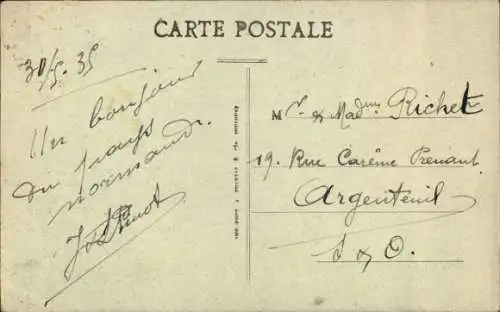 CARTE POSTALE
30/5.35
Un bonjour
du pays
normand.
Mr & Madme Richet
19. Rue Carême Prenant
Argenteuil
S & O.